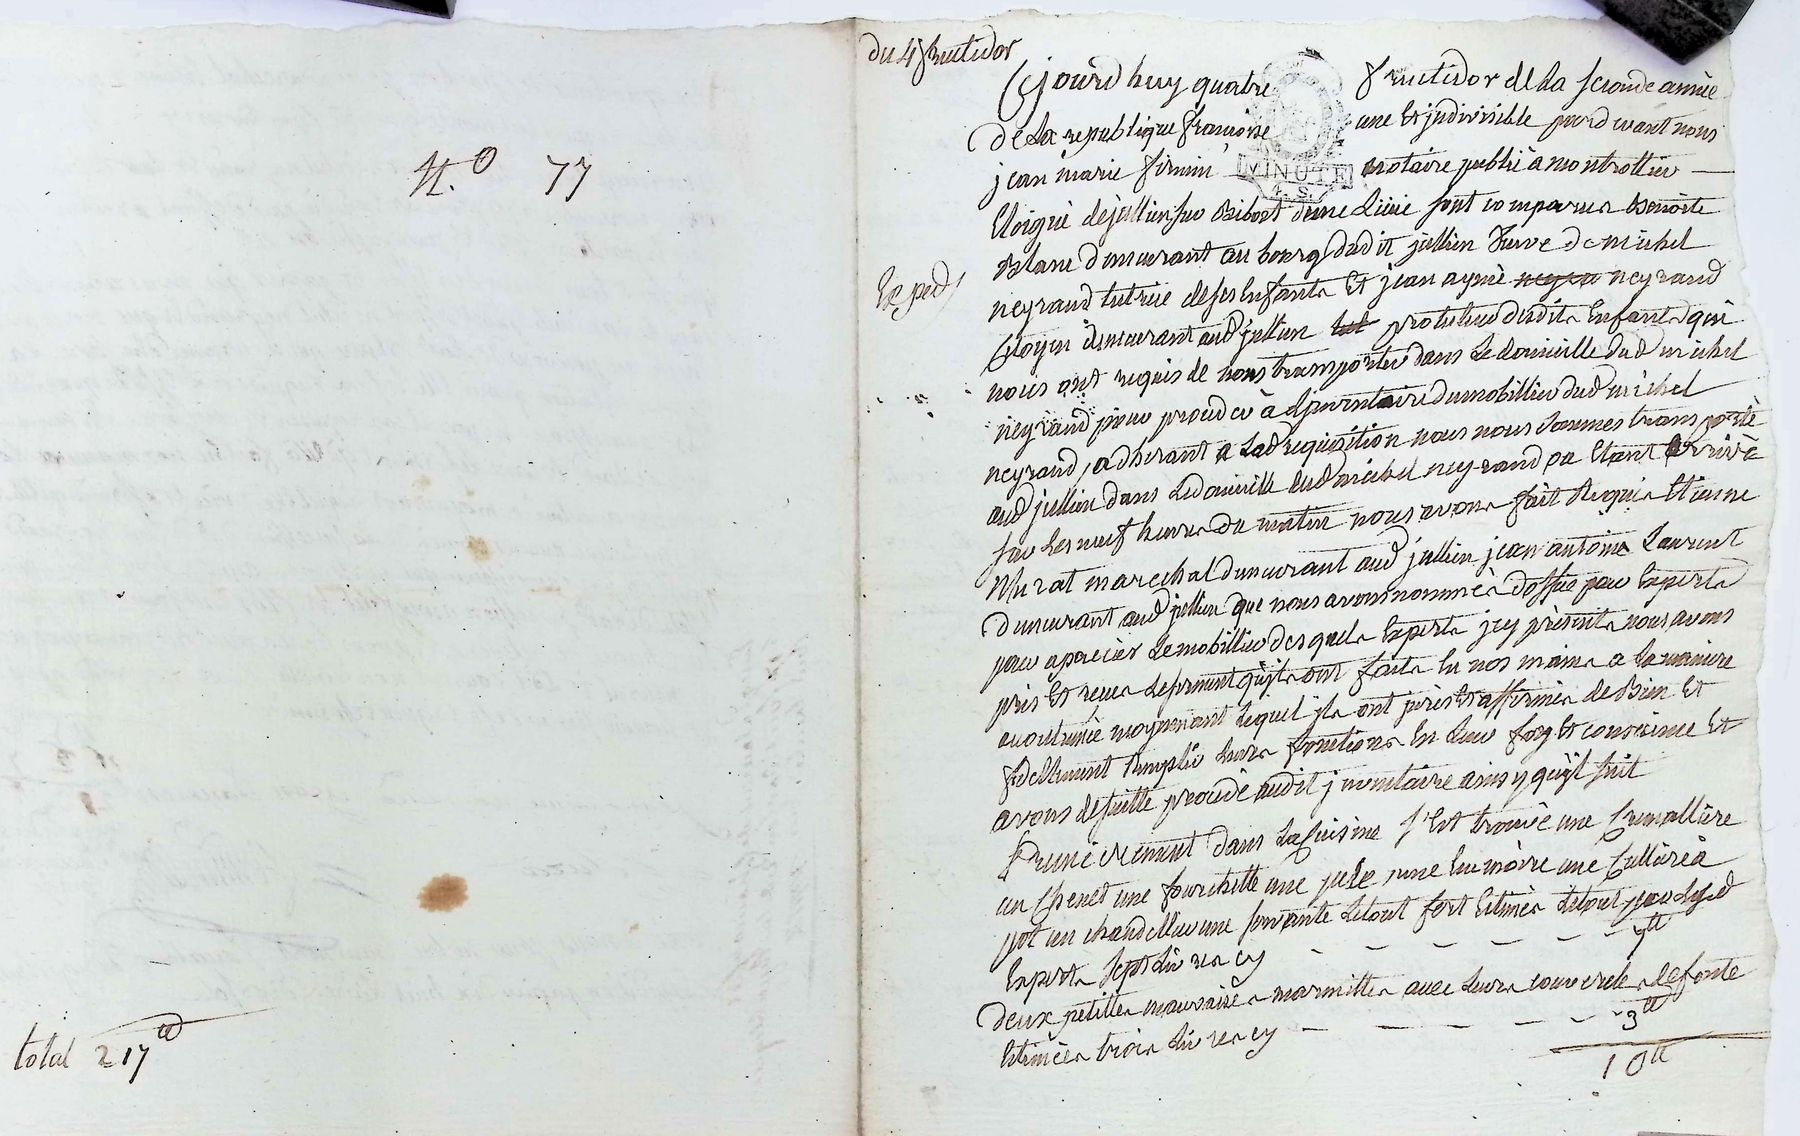 N.o 77
total 217 lt
du 4 fructidor
Exped
MINUTE
4. S.
Cejourd huy quatre fructidor de la seconde année
de la republique francoise une et jndivisible pard evant nous
jean marie firmin notaire public à montrottier
Eloigné de jullien sur Bibost dune Lieüe sont comparus Benoite
Blanc demeurant au bourg dudit jullien veuve de michel
neyrand tutrice de ses Enfants Et jean aymé neyrand
Citoyen demeurant aud jullien protuteur desdits Enfants qui
nous ont requis de nous transporter dans Le domicille dud michel
neyrand pour proceder à Ljnventaire dumobillier dud michel
neyrand, adherant a Lad requisition nous nous sommes transporté
aud jullien dans Ledomicille dud michel neyrand ou Etant arrivé
sur Les neuf heures du matin nous avons fait Requis Etienne
Murat marechal demeurant aud jullien jean antoine Laurent
demeurant aud jullien que nous avons nommés doffice pour Experts
pour aprecier Lemobillier desquels Experts jcy présents nous avons
pris et reçu Leserment quils ont faits En nos mains a la maniere
accoutumée moyennant Lequel jls ont promis et affirmés de Bien Et
fidellement remplir Leurs fonctions En Leur foy Et conscience Et
avons desuitte procédé audit jnventaire ainsy quil suit
Premierement dans La Cuisine s'est trouvé une Cremallière
un Chenet une fourchette une pele une une Cullière à
pot un chandellier une Letout fort Estimés Letout par Lesd
Experts sept Livres cy - - - - - - 7 lt
deux petittes mauvaises marmittes avec Leurs couvercles de fonte
Estimées trois Livres cy - - - - - - 3 lt
10 lt